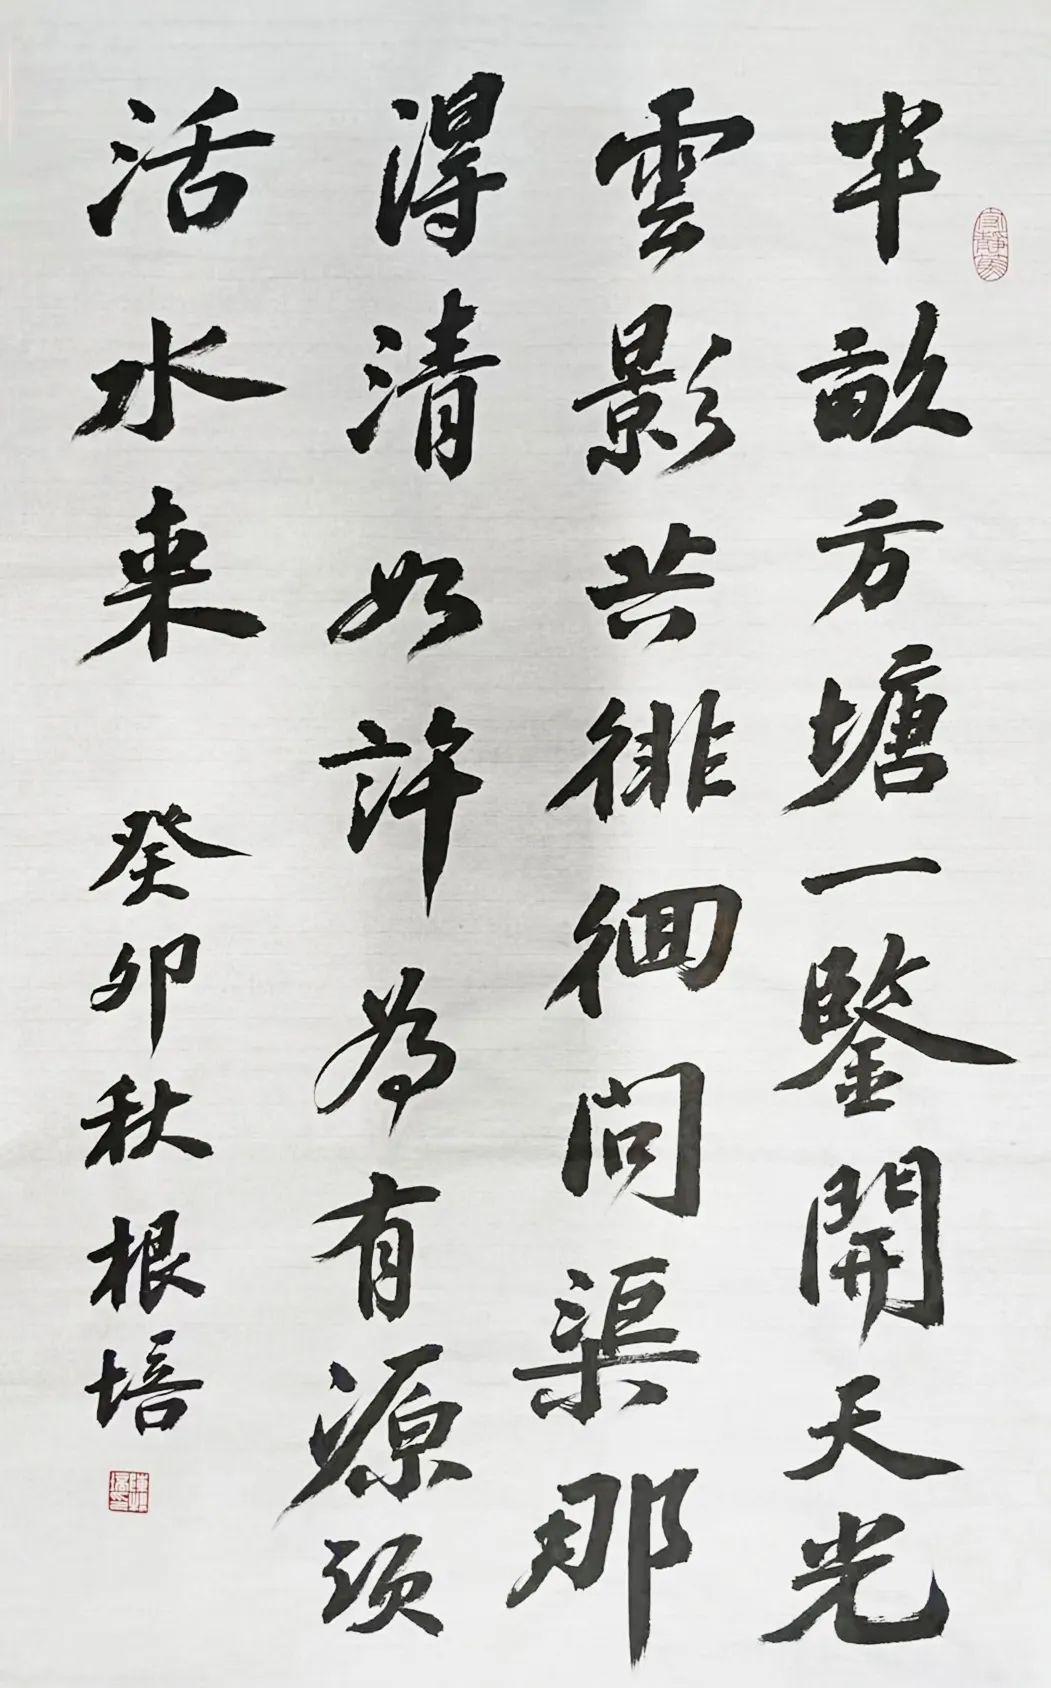 半畝方塘一鑒開天光
雲影共徘徊問渠那
得清如許為有源頭
活水来
癸卯秋根培